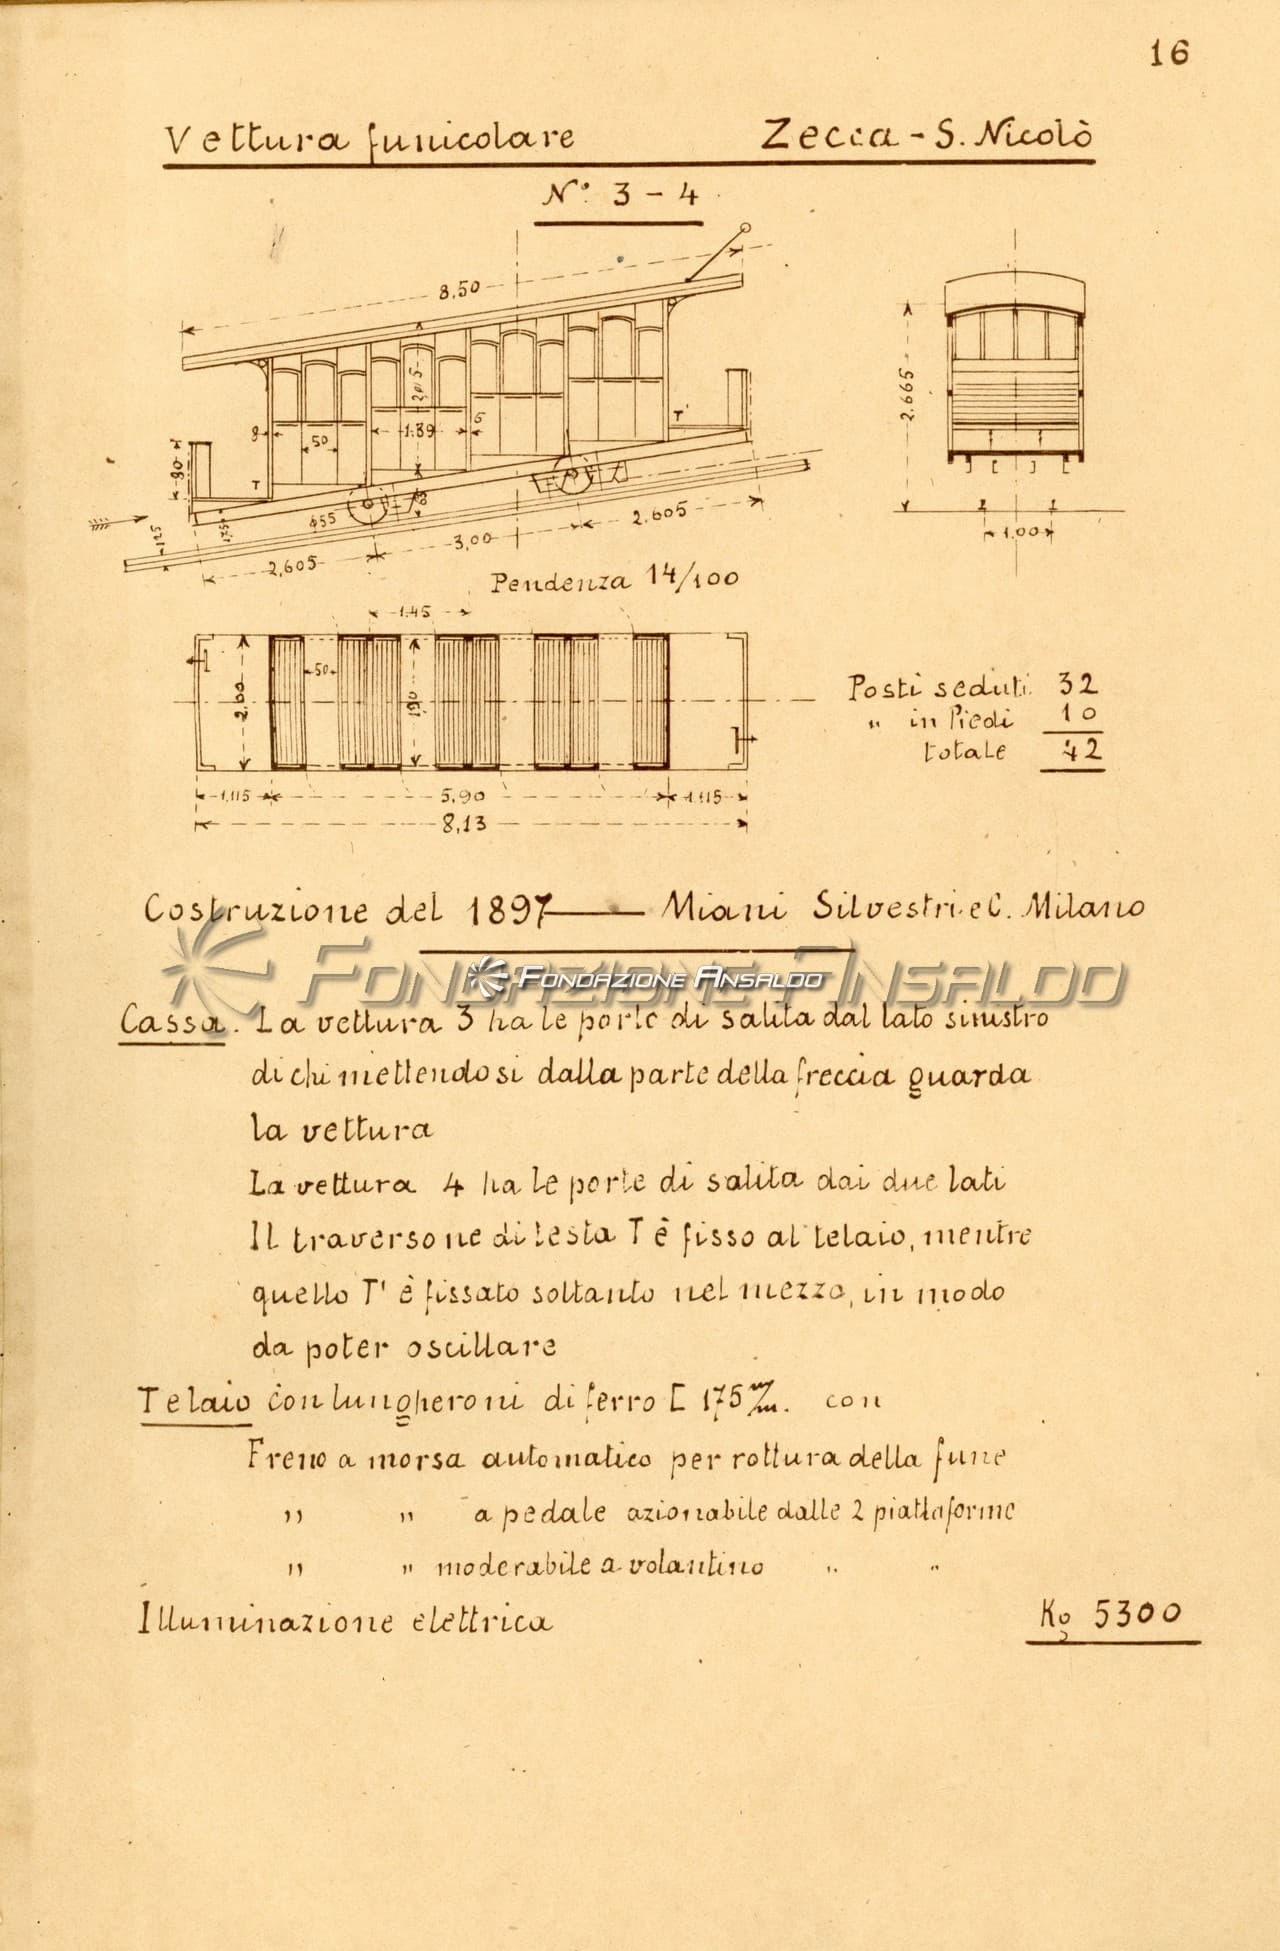 16
Vettura funicolare Zecca - S. Nicolò
N° 3 - 4
8,50
2.05
8
50
1.39
6
T'
80
T
2.665
φ55
125
2,605
3,00
2.605
1.00
Pendenza 14/100
1.45
2.00
50
1.90
Posti seduti 32
" in Piedi 10
totale 42
1,115 5,90 1.115
8,13
Costruzione del 1897 — Miani Silvestri e C. Milano
FONDAZIONE ANSALDO
FONDAZIONE ANSALDO
Cassa. La vettura 3 ha le porte di salita dal lato sinistro
di chi mettendosi dalla parte della freccia guarda
la vettura
La vettura 4 ha le porte di salita dai due lati
Il traversone di testa T è fisso al telaio, mentre
quello T' è fissato soltanto nel mezzo, in modo
da poter oscillare
Telaio con lungheroni di ferro [ 175 m/m. con
Freno a morsa automatico per rottura della fune
" " a pedale azionabile dalle 2 piattaforme
" " moderabile a volantino " "
Illuminazione elettrica Kg 5300